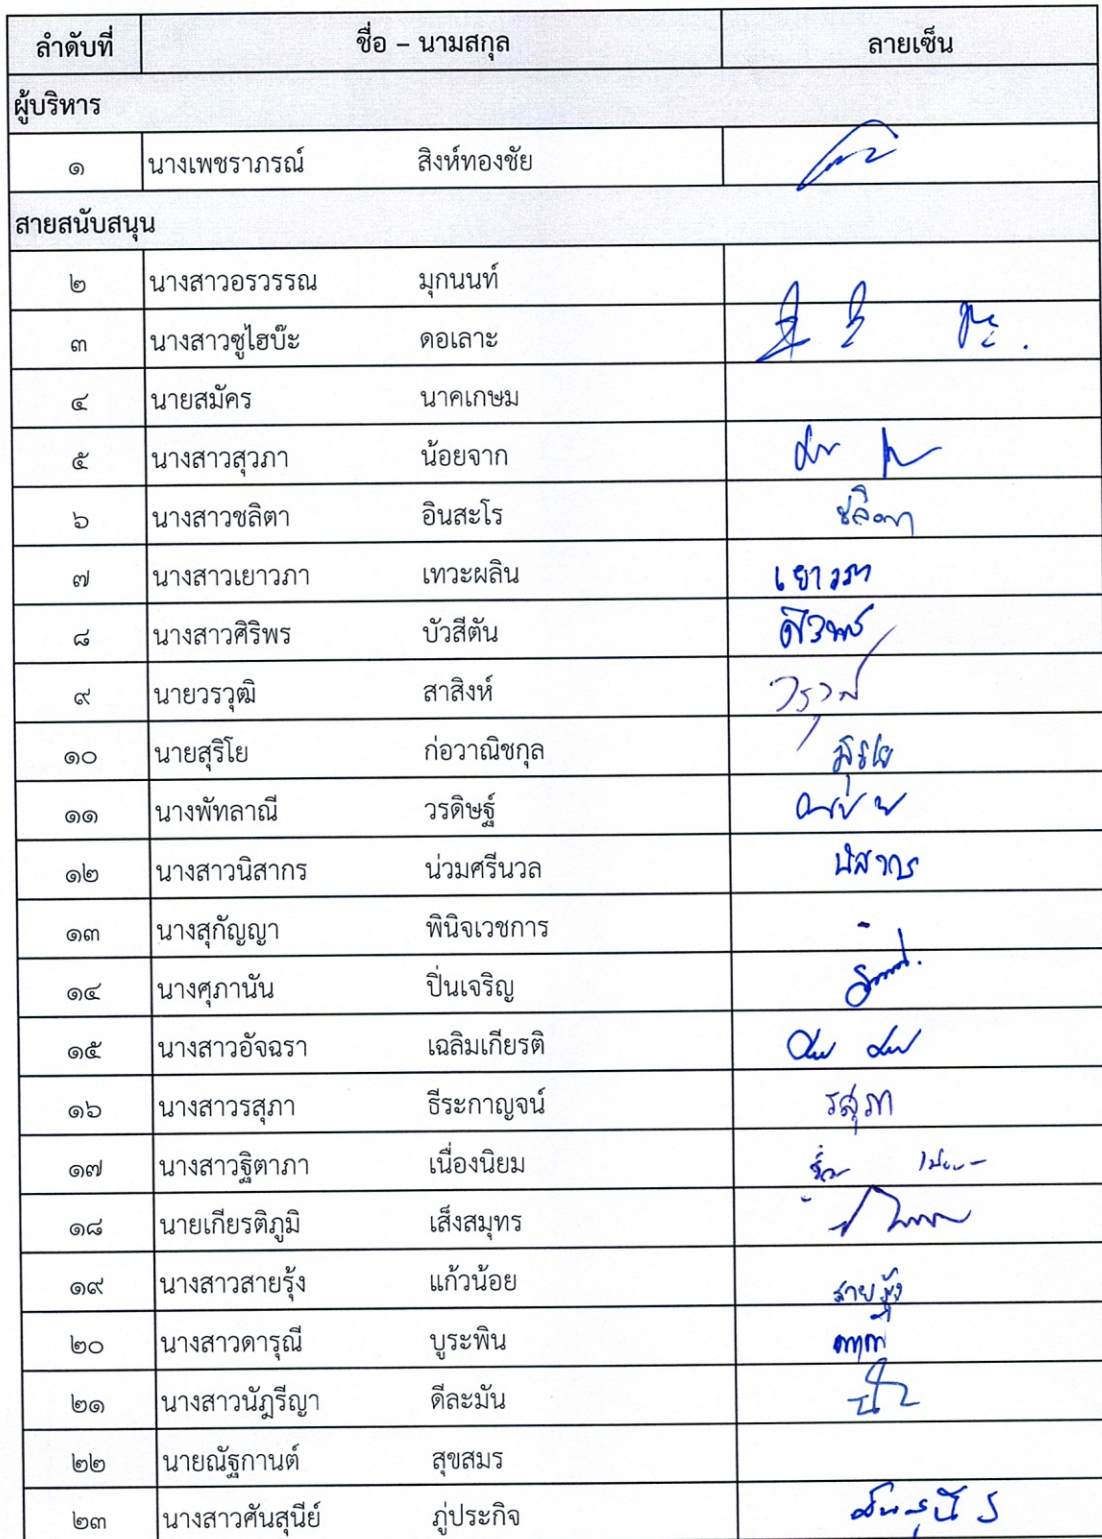 ลำดับที่ ชื่อ – นามสกุล ลายเซ็น
ผู้บริหาร
๑ นางเพชราภรณ์ สิงห์ทองชัย
สายสนับสนุน
๒ นางสาวอรวรรณ มุกนนท์
๓ นางสาวซูไฮบ๊ะ ดอเลาะ
๔ นายสมัคร นาคเกษม
๕ นางสาวสุวภา น้อยจาก
๖ นางสาวชลิตา อินสะโร ชลิตา
๗ นางสาวเยาวภา เทวะผลิน เยาวภา
๘ นางสาวศิริพร บัวสีตัน ศิริพร
๙ นายวรวุฒิ สาสิงห์
๑๐ นายสุริโย ก่อวาณิชกุล สุริโย
๑๑ นางพัทลาณี วรดิษฐ์
๑๒ นางสาวนิสากร น่วมศรีนวล นิสากร
๑๓ นางสุกัญญา พินิจเวชการ
๑๔ นางศุภานัน ปิ่นเจริญ
๑๕ นางสาวอัจฉรา เฉลิมเกียรติ
๑๖ นางสาวรสุภา ธีระกาญจน์ รสุภา
๑๗ นางสาวฐิตาภา เนื่องนิยม
๑๘ นายเกียรติภูมิ เส็งสมุทร
๑๙ นางสาวสายรุ้ง แก้วน้อย สายรุ้ง
๒๐ นางสาวดารุณี บูระพิน
๒๑ นางสาวนัฎรีญา ดีละมัน
๒๒ นายณัฐกานต์ สุขสมร
๒๓ นางสาวศันสุนีย์ ภู่ประกิจ